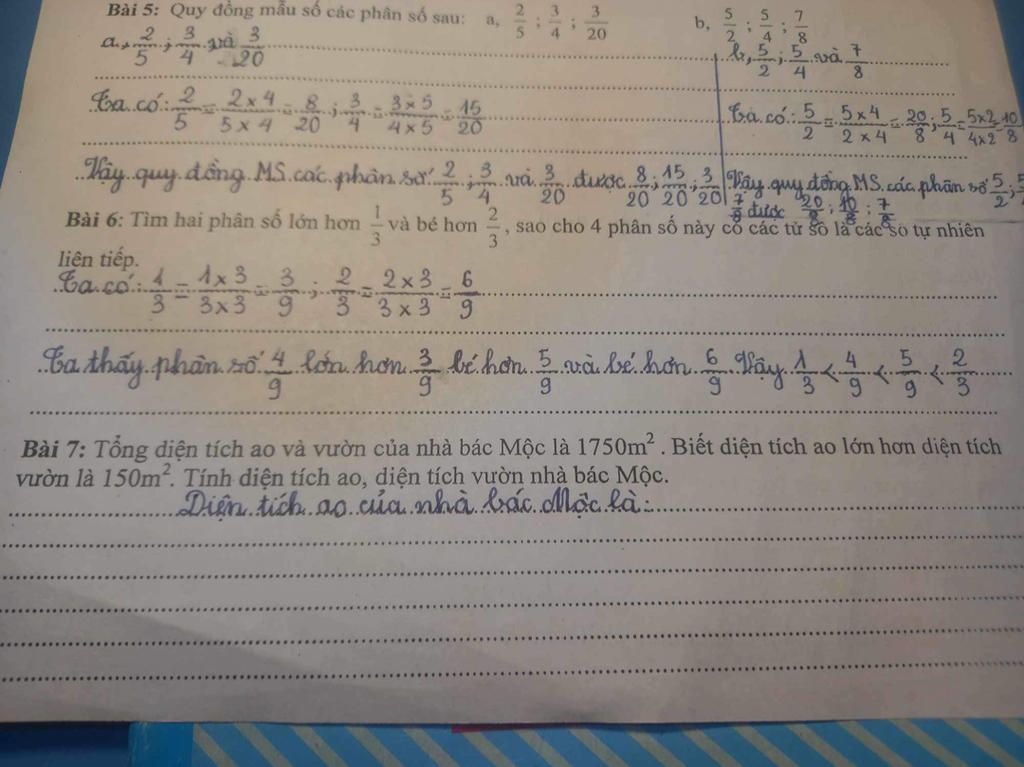 Bài 5: Quy đồng mẫu số các phân số sau: a, 2/5 ; 3/4 ; 3/20 b, 5/2 ; 5/4 ; 7/8
a, 2/5 ; 3/4 và 3/20
b, 5/2 ; 5/4 và 7/8
Ta có: 2/5 = 2×4/5×4 = 8/20 ; 3/4 = 3×5/4×5 = 15/20
Ta có: 5/2 = 5×4/2×4 = 20/8 ; 5/4 = 5×2/4×2 = 10/8
Vậy quy đồng MS các phân số 2/5 ; 3/4 và 3/20 được 8/20 ; 15/20 ; 3/20
Vậy quy đồng MS các phân số 5/2 ;
7/8 được 20/8 ; 10/8 ; 7/8
Bài 6: Tìm hai phân số lớn hơn 1/3 và bé hơn 2/3 , sao cho 4 phân số này có các tử số là các số tự nhiên
liên tiếp.
Ta có: 1/3 = 1×3/3×3 = 3/9 ; 2/3 = 2×3/3×3 = 6/9
Ta thấy phân số 4/9 lớn hơn 3/9 bé hơn 5/9 và bé hơn 6/9 Vậy 1/3 < 4/9 < 5/9 < 2/3
Bài 7: Tổng diện tích ao và vườn của nhà bác Mộc là 1750m² . Biết diện tích ao lớn hơn diện tích
vườn là 150m². Tính diện tích ao, diện tích vườn nhà bác Mộc.
Diện tích ao của nhà bác Mộc là: